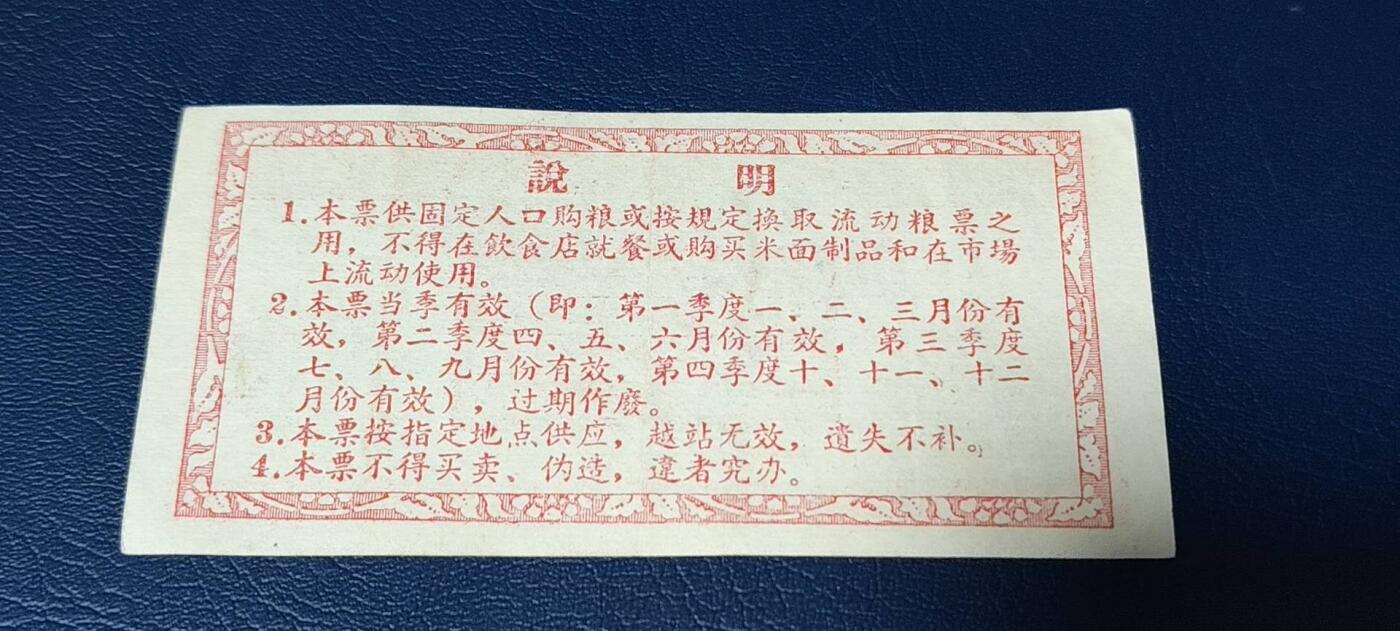 說 明
1.本票供固定人口购粮或按規定換取流动粮票之
用，不得在飲食店就餐或购买米面制品和在市場
上流动使用。
2.本票当季有效（即：第一季度一、二、三月份有
效，第二季度四、五、六月份有效，第三季度
七、八、九月份有效，第四季度十、十一、十二
月份有效），过期作廢。
3.本票按指定地点供应，越站无效，遺失不补。
4.本票不得买卖、伪造，違者究办。